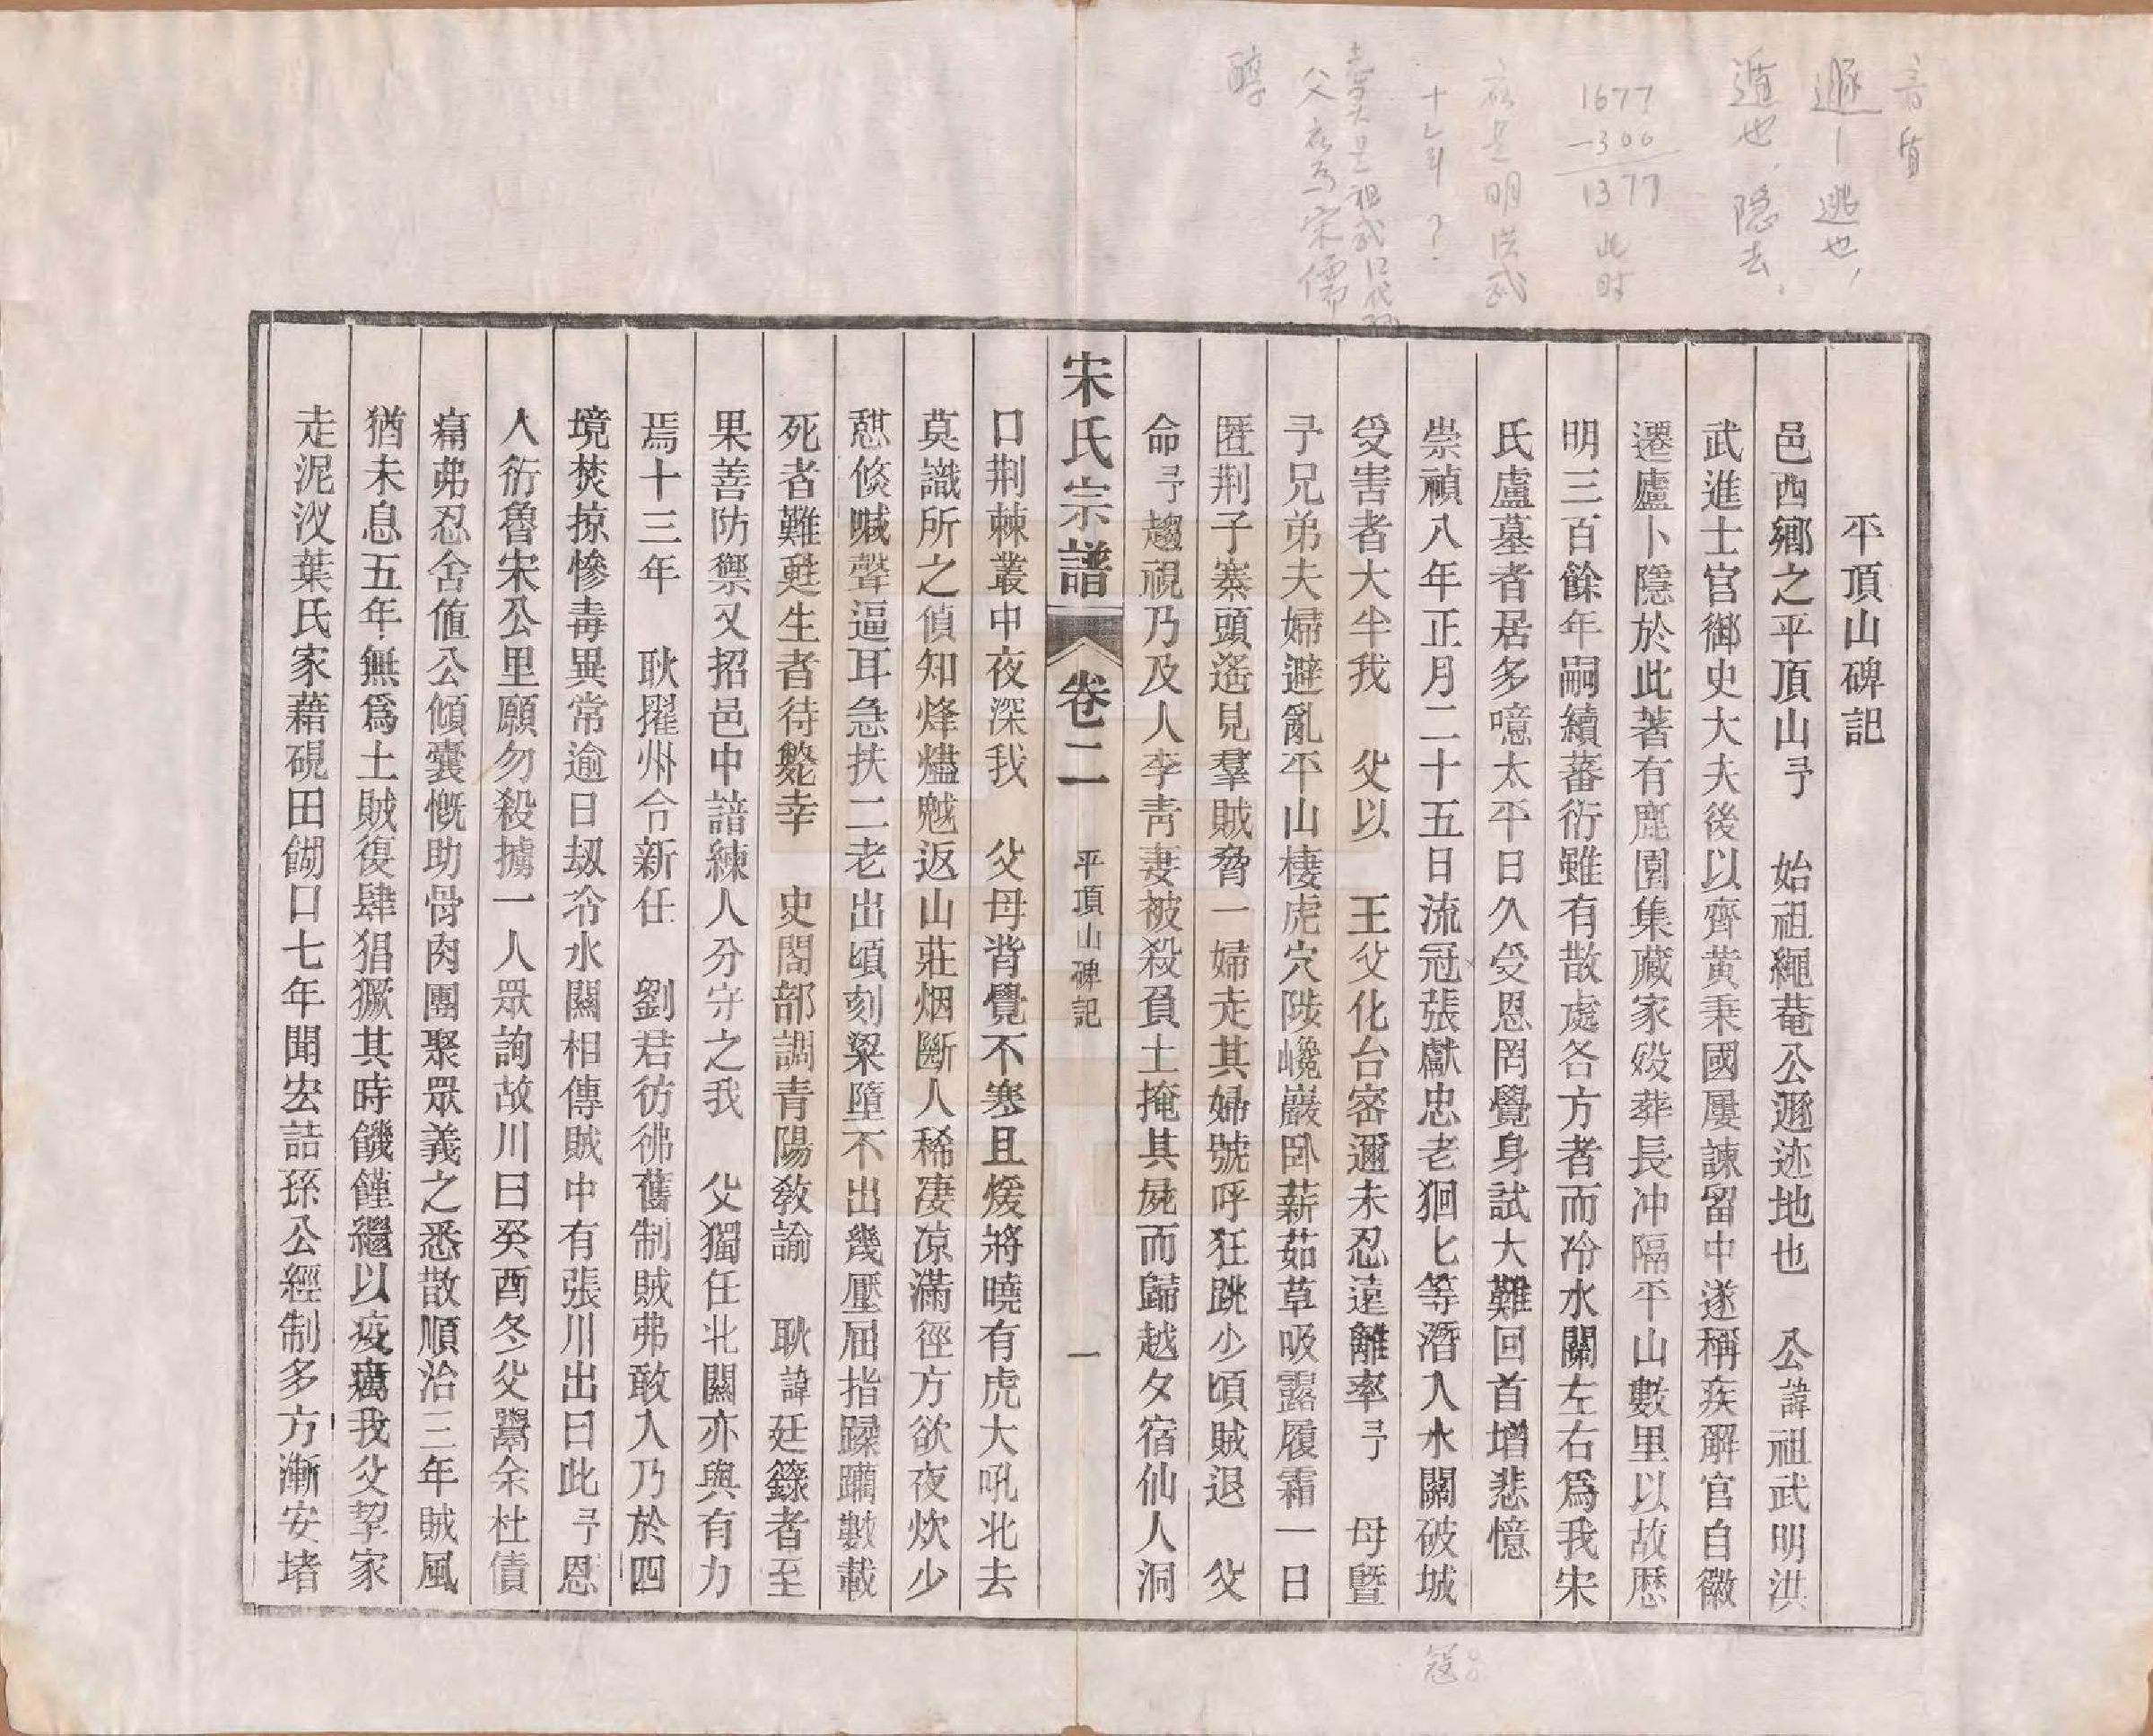 平頂山碑記
邑西鄉之平頂山予 始祖繩菴公遯迹地也 公諱祖武明洪
武進士官御史大夫後以齊黃秉國屢諫留中遂稱疾解官自徽
遷廬卜隱於此著有鹿園集藏家歿葬長冲隔平山數里以故歷
明三百餘年嗣續蕃衍雖有散處各方者而冷水關左右爲我宋
氏廬墓者居多噫太平日久受恩罔覺身試大難回首增悲憶
崇禎八年正月二十五日流冠張獻忠老狪匕等潛入水關破城
受害者大半我 父以 王父化台密邇未忍遠離率予 母曁
予兄弟夫婦避亂平山棲虎穴陟巉巖卧薪茹草吸露履霜一日
匿荆子寨頭遙見羣賊脅一婦走其婦號呼狂跳少頃賊退 父
命予趨視乃及人李青妻被殺負土掩其屍而歸越夕宿仙人洞
宋氏宗譜 卷二 平頂山碑記 一
口荆棘叢中夜深我 父母背覺不寒且煖將曉有虎大吼北去
莫識所之偵知烽燼尅返山莊烟斷人稀凄凉滿徑方欲夜炊少
憇倏喊聲逼耳急扶二老出頃刻梁墮不出幾壓屈指蹂躪數載
死者難甦生者待斃幸 史閣部調青陽敎諭 耿諱廷籙者至
果善防禦又招邑中諳練人分守之我 父獨任北關亦與有力
焉十三年 耿擢州令新任 劉君彷彿舊制賊弗敢入乃於四
境焚掠慘毒異常逾日刼冷水關相傳賊中有張川出曰此予恩
人衍魯宋公里願勿殺擄一人眾詢故川曰癸酉冬父鬻余杜債
痛弗忍舍値公傾囊慨助骨肉團聚眾義之悉散順治三年賊風
猶未息五年無爲土賊復肆猖獗其時饑饉繼以疫癘我父挈家
走泥汊葉氏家藉硯田餬口七年聞宏詰孫公經制多方漸安堵
音質
遯—逃也，
遁也，隱去。
1677
-300
1377 此時
應是明洪武
十七年？
父應爲宋儒
醇
寇